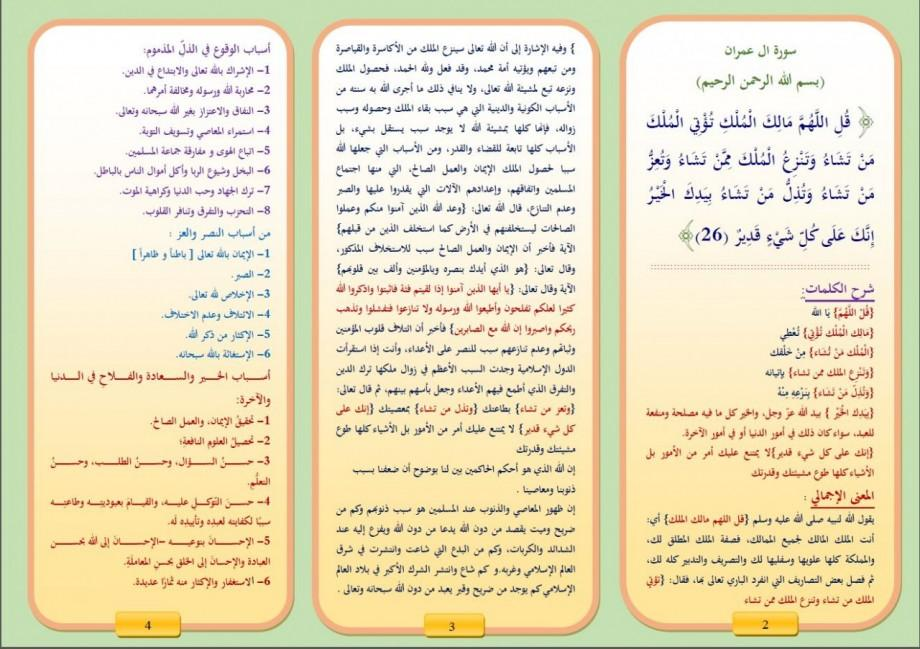 سورة ال عمران
(بسم الله الرحمن الرحيم)
﴿ قُلِ اللَّهُمَّ مَالِكَ الْمُلْكِ تُؤْتِي الْمُلْكَ
مَنْ تَشَاءُ وَتَنْزِعُ الْمُلْكَ مِمَّنْ تَشَاءُ وَتُعِزُّ
مَنْ تَشَاءُ وَتُذِلُّ مَنْ تَشَاءُ بِيَدِكَ الْخَيْرُ
إِنَّكَ عَلَى كُلِّ شَيْءٍ قَدِيرٌ (26) ﴾
شرح الكلمات:
{قُلِ اللَّهُمَّ} يَا الله
{مَالِكَ الْمُلْك تُؤْتِي} تُعْطِي
{الْمُلْك مَنْ تَشَاء} مِنْ خَلْقك
{وَتَنْزِع الملك ممن تشاء} بإتيانه
{وَتُذِلّ مَنْ تَشَاء} بِنَزْعِهِ مِنْهُ
{بِيَدِك الْخَيْر } بيد الله عزّ وجل، والخير كل ما فيه مصلحة ومنفعة
للعبد، سواء كان ذلك في أمور الدنيا أو في أمور الآخرة.
{إنك على كل شيء قدير}لا يمتنع عليك أمر من الأمور بل
الأشياء كلها طوع مشيئتك وقدرتك
المعنى الإجمالي :
يقول الله لنبيه صلى الله عليه وسلم {قل اللهم مالك الملك} أي:
أنت الملك المالك لجميع الممالك، فصفة الملك المطلق لك،
والمملكة كلها علويها وسفليها لك والتصريف والتدبير كله لك،
ثم فصل بعض التصاريف التي انفرد الباري تعالى بها، فقال: {تؤتي
الملك من تشاء وتنزع الملك ممن تشاء
2
} وفيه الإشارة إلى أن الله تعالى سينزع الملك من الأكاسرة والقياصرة
ومن تبعهم ويؤتيه أمة محمد، وقد فعل ولله الحمد، فحصول الملك
ونزعه تبع لمشيئة الله تعالى، ولا ينافي ذلك ما أجرى الله به سنته من
الأسباب الكونية والدينية التي هي سبب بقاء الملك وحصوله وسبب
زواله، فإنها كلها بمشيئة الله لا يوجد سبب يستقل بشيء، بل
الأسباب كلها تابعة للقضاء والقدر، ومن الأسباب التي جعلها الله
سببا لحصول الملك الإيمان والعمل الصالح، التي منها اجتماع
المسلمين واتفاقهم، وإعدادهم الآلات التي يقدروا عليها والصبر
وعدم التنازع، قال الله تعالى: {وعد الله الذين آمنوا منكم وعملوا
الصالحات ليستخلفنهم في الأرض كما استخلف الذين من قبلهم}
الآية فأخبر أن الإيمان والعمل الصالح سبب للاستخلاف المذكور،
وقال تعالى: {هو الذي أيدك بنصره وبالمؤمنين وألف بين قلوبهم}
الآية وقال تعالى: {يا أيها الذين آمنوا إذا لقيتم فئة فاثبتوا واذكروا الله
كثيرا لعلكم تفلحون وأطيعوا الله ورسوله ولا تنازعوا فتفشلوا وتذهب
ريحكم واصبروا إن الله مع الصابرين} فأخبر أن ائتلاف قلوب المؤمنين
وثباتهم وعدم تنازعهم سبب للنصر على الأعداء، وأنت إذا استقرأت
الدول الإسلامية وجدت السبب الأعظم في زوال ملكها ترك الدين
والتفرق الذي أطمع فيهم الأعداء وجعل بأسهم بينهم، ثم قال تعالى:
{وتعز من تشاء} بطاعتك {وتذل من تشاء} بمعصيتك {إنك على
كل شيء قدير} لا يمتنع عليك أمر من الأمور بل الأشياء كلها طوع
مشيئتك وقدرتك
إن الله الذي هو أحكم الحاكمين بين لنا بوضوح أن ضعفنا بسبب
ذنوبنا ومعاصينا .
إن ظهور المعاصي والذنوب عند المسلمين هو سبب ذنوبهم وكم من
ضريح وميت يقصد من دون الله يدعا من دون الله ويفزع إليه عند
الشدائد والكربات، وكم من البدع التي شاعت وانتشرت في شرق
العالم الإسلامي وغربه.و كم شاع وانتشر الشرك الأكبر في بلاد العالم
الإسلامي كم يوجد من ضريح وقبر يعبد من دون الله سبحانه وتعالى .
3
أسباب الوقوع في الذلّ المذموم:
1- الإشراك بالله تعالى والابتداع في الدين.
2- محاربة الله ورسوله ومخالفة أمرهما.
3- النفاق والاعتزاز بغير الله سبحانه وتعالى.
4- استمراء المعاصي وتسويف التوبة.
5- اتباع الهوى و مفارقة جماعة المسلمين.
6- البخل وشيوع الربا وأكل أموال الناس بالباطل.
7- ترك الجهاد وحب الدنيا وكراهية الموت.
8- التحزب والتفرق وتنافر القلوب.
من أسباب النصر والعز :
1- الإيمان بالله تعالى [ باطناً و ظاهراً ]
2- الصبر.
3- الإخلاص لله تعالى.
4- الائتلاف وعدم الاختلاف.
5- الإكثار من ذكر الله.
6- الإستغاثة بالله سبحانه.
أسباب الخير والسعادة والفلاح في الدنيا
والآخرة:
1- تحقيقُ الإيمان، والعمل الصالح.
2- تحصيلُ العلوم النافعةِ؛
3- حسنُ السؤال، وحسنُ الطلب، وحسنُ
التعلُّم.
4- حسنَ التوكلِ عليه، والقيامَ بعبوديتِه وطاعتِه
سببًا لكفايته لعبدِه وتأييدِه له.
5- الإحسانَ بنوعيه –الإحسانَ إلى الله بحسن
العبادة والإحسانَ إلى الخلق بحسنِ المعاملةِ.
6- الاستغفار والإكثار منه ثمارًا عديدة.
4